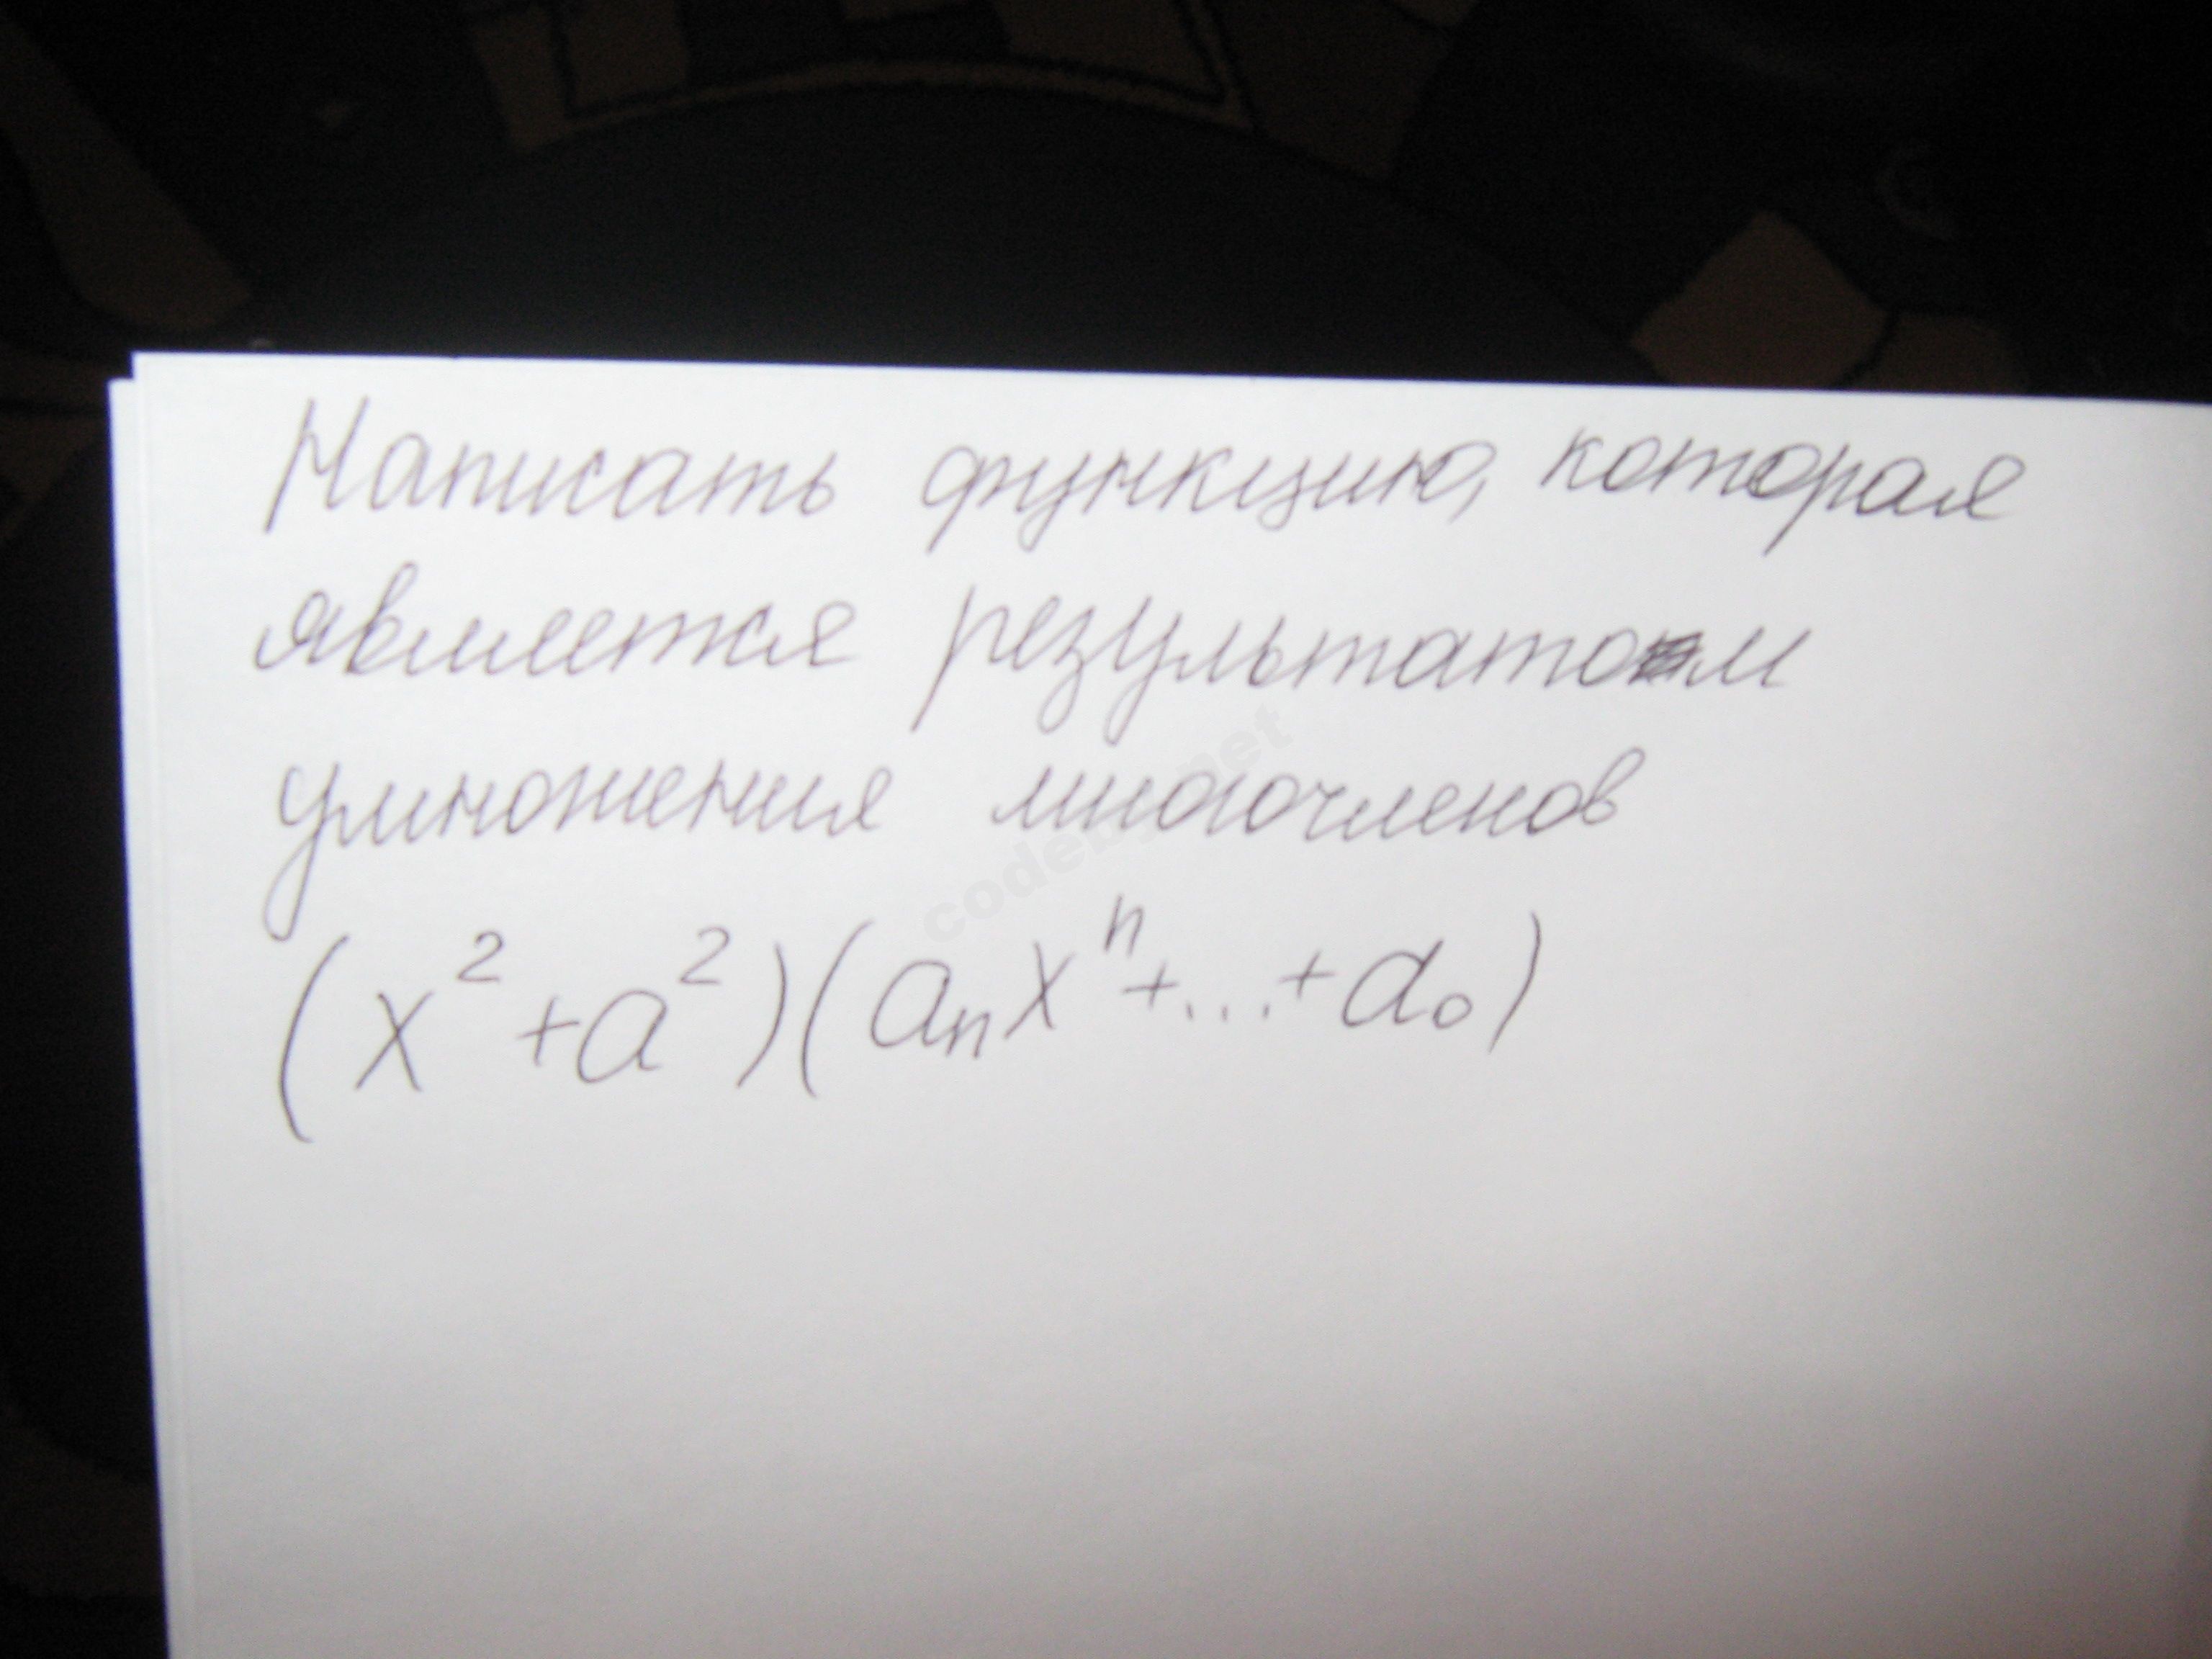 Написать функцию, которая
является результатом
умножения многочленов
(x² + a²)(aₙxⁿ+...+a₀)
codeby.net